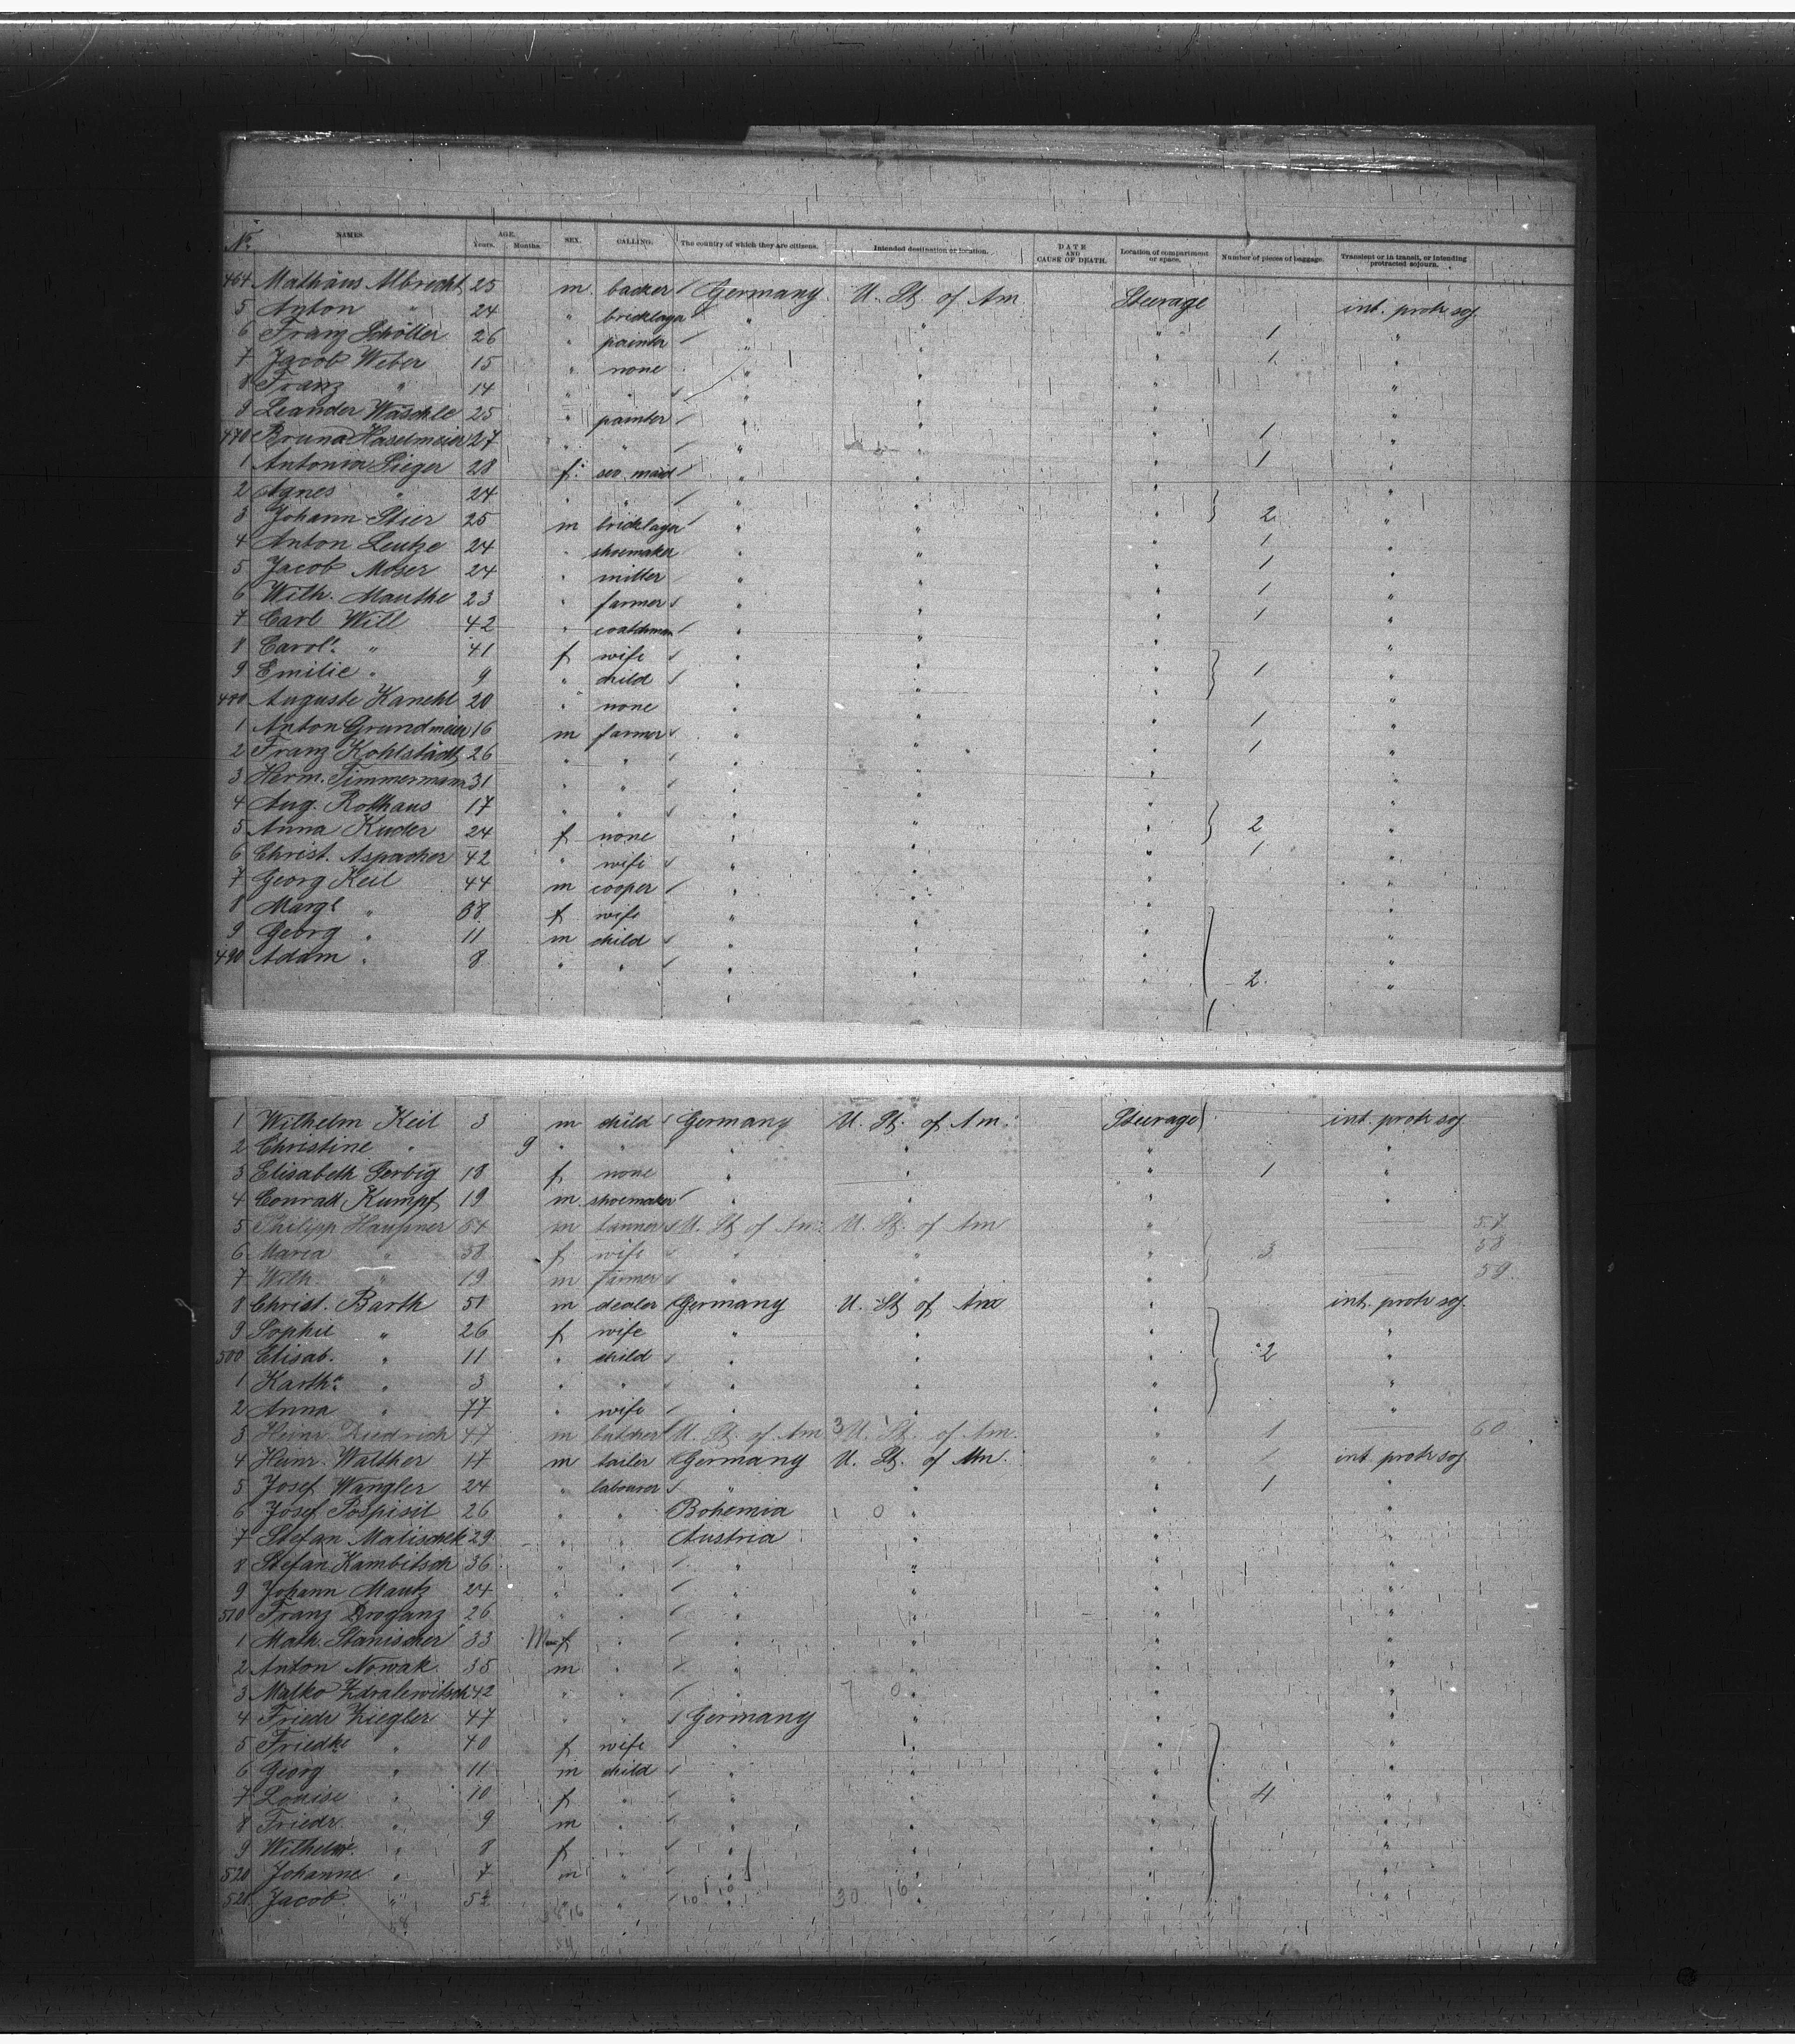 No. NAMES. AGE. Years. Months. SEX. CALLING. The country of which they are citizens. Intended destination or location. DATE AND CAUSE OF DEATH. Location of compartment or space. Number of pieces of baggage. Transient or in transit, or intending protracted sojourn.
464 Mathäus Albrecht 25 m. backer Germany U. St. of Am. Steerage int. protr soj.
5 Anton " 24 " bricklayer " " " 1 "
6 Franz Schöller 26 " painter " " " 1 "
7 Jacob Weber 15 " none " " " "
8 Franz " 14 " " " " " "
9 Leander Wäschle 25 " painter " " " 1 "
470 Bruno Haselmeier 27 " " " " " 1 "
1 Antonia Sieger 28 f. ser. maid " " " "
2 Agnes " 24 " " " " " 2 "
3 Johann Stier 25 m bricklayer " " " 1 "
4 Anton Leutze 24 " shoemaker " " " 1 "
5 Jacob Moser 24 " miller " " " 1 "
6 Wilh. Manthe 23 " farmer " " " 1 "
7 Carl Will 42 " coachman " " " "
8 Carol. " 41 f wife " " " 1 "
9 Emilie " 9 " child " " " "
480 Auguste Kanehl 20 " none " " " 1 "
1 Anton Grundmeier 16 m farmer " " " 1 "
2 Franz Kohlstädt 26 " " " " " "
3 Herm. Timmermann 31 " " " " " "
4 Aug. Rothaus 17 " " " " " 2 "
5 Anna Kuder 24 f none " " " 1 "
6 Christ. Aspacher 42 " wife " " " "
7 Georg Keil 44 m cooper " " " "
8 Margt " 38 f wife " " " "
9 Georg " 11 m child " " " "
490 Adam " 8 " " " " " 2 "
1 Wilhelm Keil 3 m child Germany U. St. of Am. Steerage int. protr soj
2 Christine " 9 " " " " " "
3 Elisabeth Gerbig 18 f none " " " 1 "
4 Conrad Kumpf 19 m shoemaker " " " "
5 Philipp Haupner 54 m tanner U. St of Am. U. St. of Am " 57
6 Maria " 58 f wife " " " 3 58
7 Wilh. " 19 m farmer " " " 59
8 Christ. Barth 51 m dealer Germany U. St of Am " int. protr soj.
9 Sophie " 26 f wife " " " "
500 Elisab. " 11 " child " " " 2 "
1 Karth. " 3 " " " " " "
2 Anna " 77 " wife " " " "
3 Heinr. Diedrich 47 m butcher U. St. of Am 3 U. St. of Am. " 1 60
4 Heinr. Walther 17 m tailer Germany U. St. of Am. " 1 int. protr soj
5 Josef Wangler 24 " labourer " " " 1 "
6 Josef Pospisil 26 " " Bohemia 0 " " "
7 Stefan Malischek 29 " " Austria " " "
8 Stefan Kambitsch 36 " " " " " "
9 Johann Mautz 24 " " " " " "
510 Franz Droganz 26 " " " " " "
1 Math. Stanischer 33 f " " " " "
2 Anton Nowak 35 m " " " " "
3 Malko Zdralewitsch 42 " " " 7 0 " " "
4 Friedr Ziegler 47 " " Germany " " "
5 Friedke " 40 f wife " " " "
6 Georg " 11 m child " " " "
7 Louise " 10 f " " " " 4 "
8 Friedr. " 9 m " " " " "
9 Wilhelme. " 8 f " " " " "
520 Johanne " 7 m " " " " "
521 Jacob " 5 " " 10 " 30 16 " " "
58